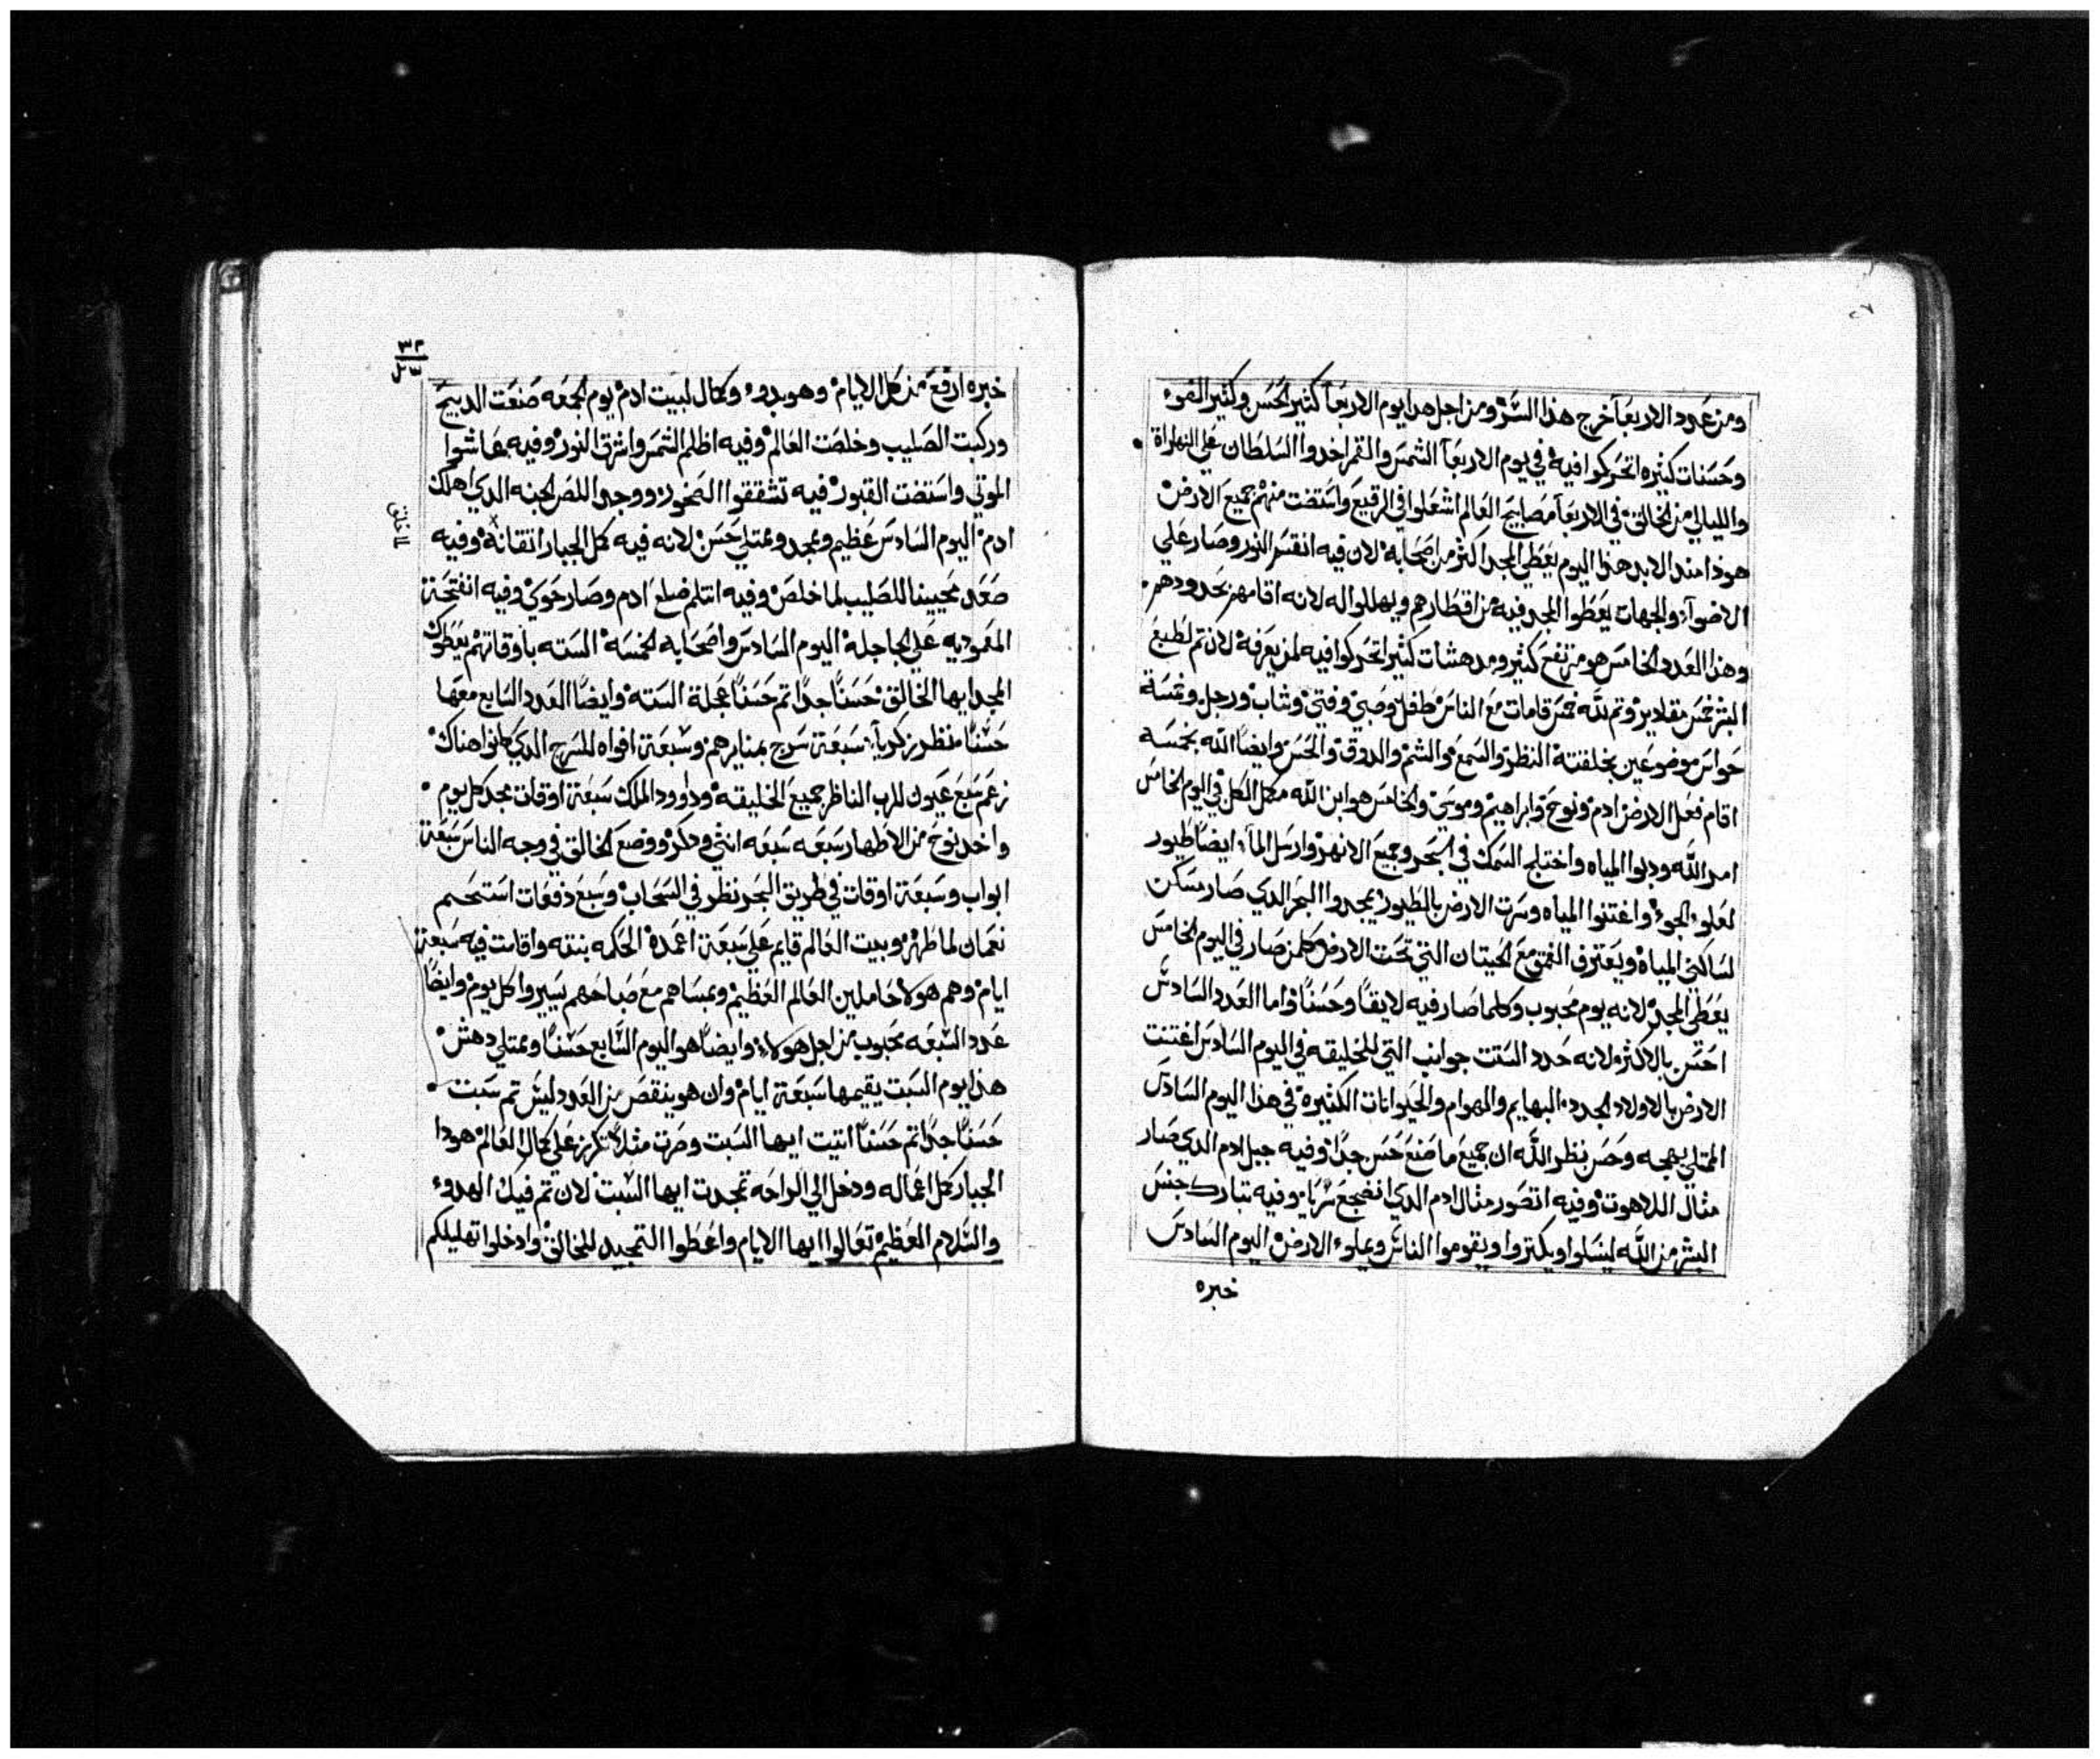 ومن عدد الاربعا خرج هذا السر ومن اجل هدا يوم الاربعا كثير الحسن وكثير الضوء
وحسنات كثيره اتحركوا فيه في يوم الاربعا الشمس والقمر اخدوا السلطان علي النهاراة
والليالي من الخالق في الاربعا مصابيح العالم اشعلوا في الرقيع واستضت منهم جميع الارض
هوذا مند الابد هذا اليوم يعطي المجد اكثر من اصحابه لان فيه انقسم النور وصار علي
الاضوآء والجهات يعطوا المجد فيه من اقطارهم ويهللوا له لانه اقامهم بحدودهم
وهذا العدد الخامس هو مرتفع كثير ومدهشات كثير اتحركوا فيه لمن يعرفه لان تم لطبع
البشر خمس مقادير وتم لله خمس قامات مع الناس طفل وصبي وفتي وشاب ورجل وخمسة
حواس موضوعين بخلقته النظر والسمع والشم والدوق والحس وايضا الله بخمسه
اقام فعل الارض ادم ونوح وابراهيم وموسي والخامس هو ابن الله مكمل الكل في اليوم الخامس
امر الله ودبوا المياه واختلج السمك في البحر وجميع الانهر وارسل المآء ايضا طيور
لعلو الجو واغتنوا المياه وسرت الارض بالطيور يمجدوا البحر الدي صار مسكن
لساكني المياه ويعترف العمق مع الحيتان التي تحت الارض كلمن صار في اليوم الخامس
يعطي المجد لانه يوم محبوب وكلما صار فيه لايقا وحسنا واما العدد السادس
احسن بالاكثر لانه حدد الستت جوانب التي للخليقه في اليوم السادس اغتنت
الارض بالاولاد الجدد البهايم والهوام والحيوانات الكثيره في هذا اليوم السادس
الممتلي بهجه وحسن نظر الله ان جميع ما صنع حسن جدا وفيه جبل ادم الدي صار
مثال اللاهوت وفيه اتصور مثال ادم الدي انضجع سريا وفيه تبارك جنس
البشر من الله لينسلوا ويكتروا ويقوموا الناس ويملوء الارض اليوم السادس
خبره
٣٢
خبره ارفع من كل الايام وهو بدوء وكمال لبيت ادم يوم الجمعه صنعت الدبيح
وركبت الصليب وخلصت العالم وفيه اظلم الشمس واشرق النور وفيه عاشوا
الموتي واستضت القبور فيه تشققوا الصخور ووجد اللص الجنه الدي اهلك
ادم اليوم السادس عظيم وممجد وممتلي حسن لانه فيه كمل الجبار اتقانه وفيه
صعد محيينا للصليب لما خلص وفيه انتلم ضلع ادم وصار حوي وفيه انفتحة
المعموديه علي الجاجلة اليوم السادس واصحابه الخمسة السته باوقاتهم يعطوك
المجد ايها الخالق حسنا جدا تم حسنا عجلة السته وايضا العدد السابع معها
حسنا منظر زكريآء سبعة سرج بمنايرهم وسبعة افواه للسرج الدي كانوا هناك
زعم سبع عيون للرب الناظر جميع الخليقه وداوود الملك سبعة اوقات مجد كل يوم
واخد نوح من الاطهار سبعه سبعه انثي ودكر ووضع الخالق في وجه الناس سبعة
ابواب وسبعة اوقات في طريق البحر نظر في السحاب وسبع دفعات استحم
نعمان لما طهر وبيت العالم قايم علي سبعة اعمدة الحكمه بنته واقامت فيه سبعة
ايام وهم هولا حاملين العالم العظيم وبمساهم مع صباحهم يسيروا كل يوم وايضا
عدد السبعه محبوب من اجل هولاء وايضا هو اليوم السابع حسنا وممتلي دهش
هذا يوم السبت يقيمها سبعة ايام وان هو ينقص من العدد ليس تم سبت
حسنا جدا تم حسنا اتيت ايها السبت وصرت مثلا تكرز علي كمال العالم هودا
الجبار كمل اعماله ودخل الي الراحه تمجدت ايها السبت لان تم فيك الهدوء
والسلام العظيم تعالوا ايها الايام واعطوا التمجيد للخالق وادخلوا تهليلكم